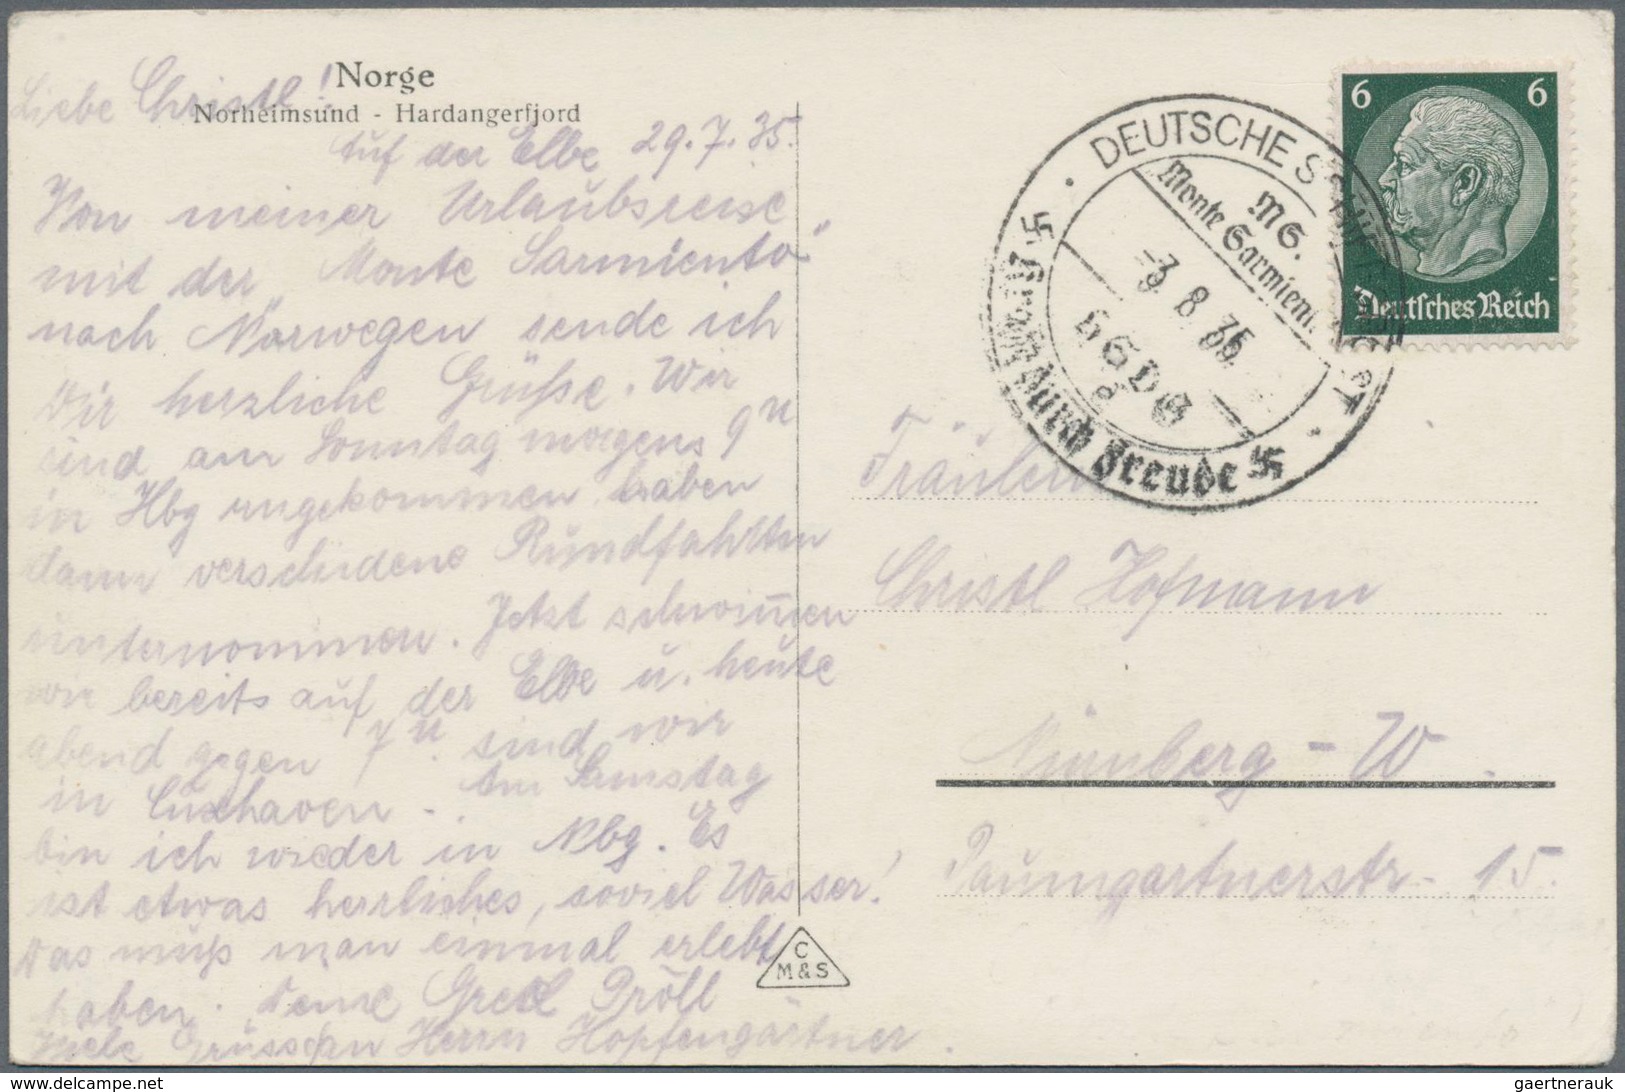 Norge
Norheimsund - Hardangerfjord
Liebe Christl!
Auf der Elbe 29.7.35.
Von meiner Urlaubsreise
mit der „Monte Sarmiento"
nach Norwegen sende ich
Dir herzliche Grüße. Wir
sind am Sonntag morgens 9 U
in Hbg angekommen haben
dann verschidene Rundfahrten
unternommen. Jetzt schwim̄en
wir bereits auf der Elbe u. heute
abend gegen 7 U. sind wir
in Cuxhaven. Am Samstag
bin ich wieder in Nbg. Es
ist etwas herrliches, soviel Wasser!
Das muß man einmal erlebt
haben. Deine Gretl Pröll
Viele Grüsse an Herrn Hopfengärtner.
C
M&S
DEUTSCHE SCHIFFSPOST
MS.
Monte Sarmiento
-3.8.35
HSDG
a
Kraft durch Freude
6 6
Deutsches Reich
Fräulein
Christl Hofmann
Nürnberg-W.
Paumgartnerstr. 15.
gaertnerauk